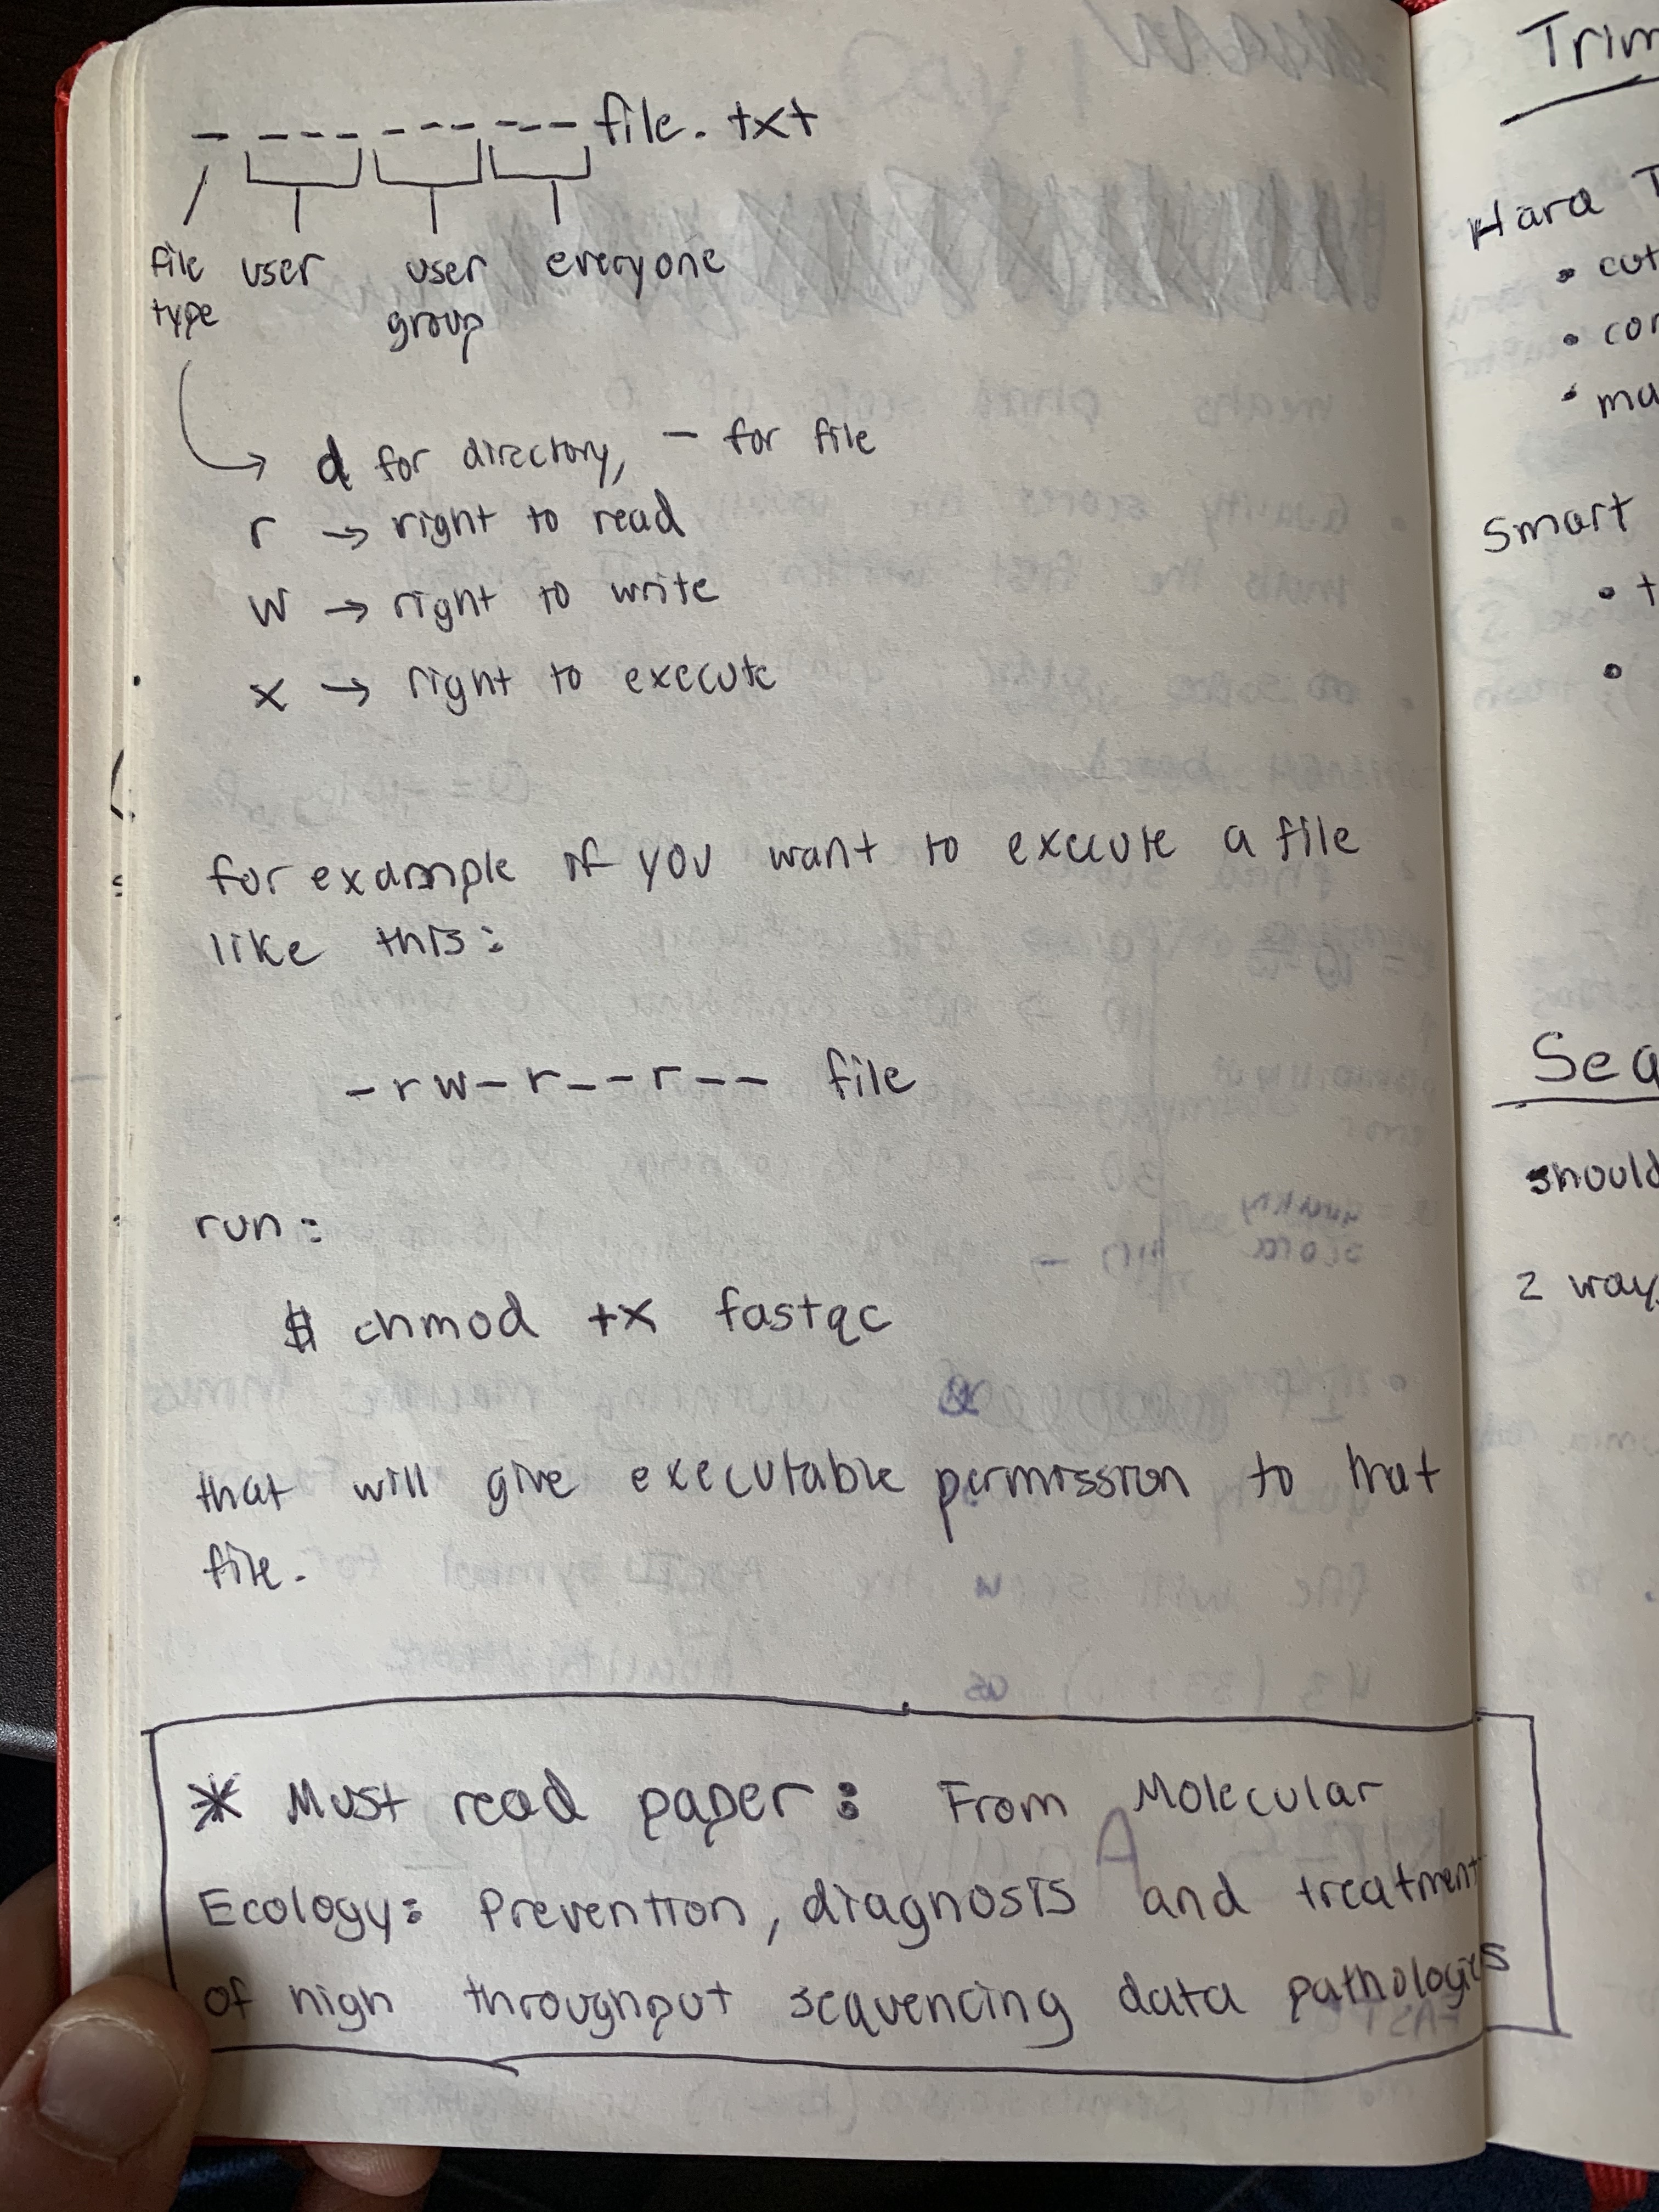 - --- --- --- file.txt
file user user everyone
type group
d for directory, - for file
r → right to read
w → right to write
x → right to execute
for example if you want to execute a file
like this:
-rw-r--r-- file
run:
$ chmod +x fastqc
that will give executable permission to that
file.
* Must read paper: From Molecular
Ecology: Prevention, diagnosis and treatment
of high throughput sequencing data pathologies
Trim
Hard T
• cut
• con
• ma
Smart
• t
•
Seq
should
2 way